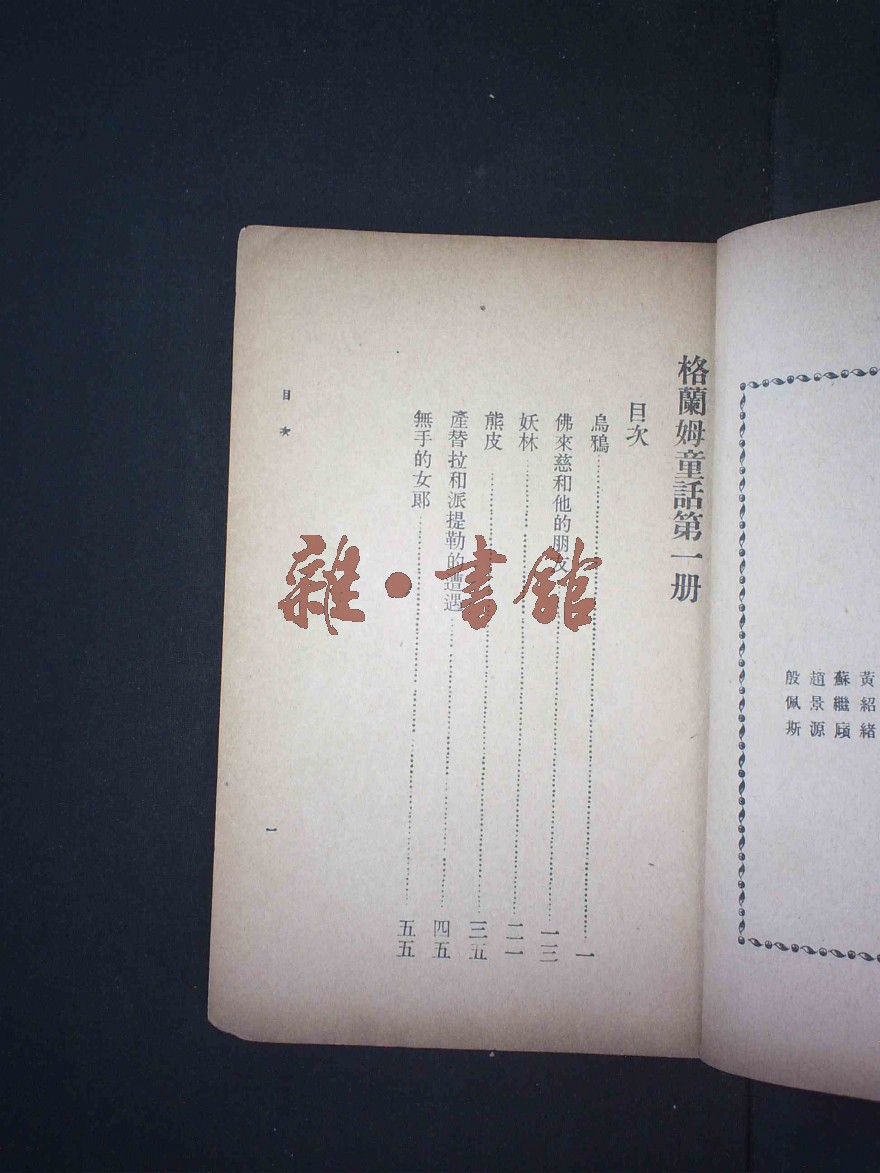 黃紹緒
蘇繼廎
趙景源
殷佩斯
格蘭姆童話第一册
目次
烏鴉……一
佛來慈和他的朋友……一三
妖林……二一
熊皮……三五
產替拉和派提勒的遭遇……四五
無手的女郎……五五
目次
一
雜·書館